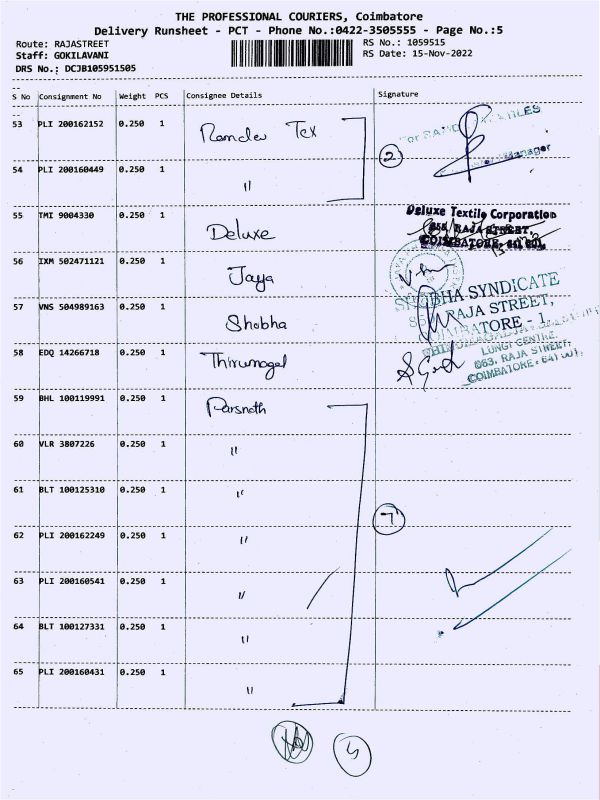 THE PROFESSIONAL COURIERS, Coimbatore
Delivery Runsheet - PCT - Phone No.:0422-3505555 - Page No.:5
Route: RAJASTREET RS No.: 1059515
Staff: GOKILAVANI RS Date: 15-Nov-2022
DRS No.: DCJB105951505
S No Consignment No Weight PCS Consignee Details Signature
53 PLI 200162152 0.250 1 Ramdev Tex
For
Manager
2
54 PLI 200160449 0.250 1 "
55 TMI 9004330 0.250 1 Deluxe
Deluxe Textile Corporation
RAJA STREET,
COIMBATORE. 641 001.
56 IXM 502471121 0.250 1 Jaya
57 VNS 504989163 0.250 1 Shobha
SHOBHA SYNDICATE
RAJA STREET,
COIMBATORE - 1
58 EDQ 14266718 0.250 1 Thirumagal
LUNGI CENTRE,
863, RAJA STREET,
COIMBATORE - 641 001,
59 BHL 100119991 0.250 1 Parsnath
60 VLR 3807226 0.250 1 "
61 BLT 100125310 0.250 1 "
7
62 PLI 200162249 0.250 1 "
63 PLI 200160541 0.250 1 "
64 BLT 100127331 0.250 1 "
65 PLI 200160431 0.250 1 "
5